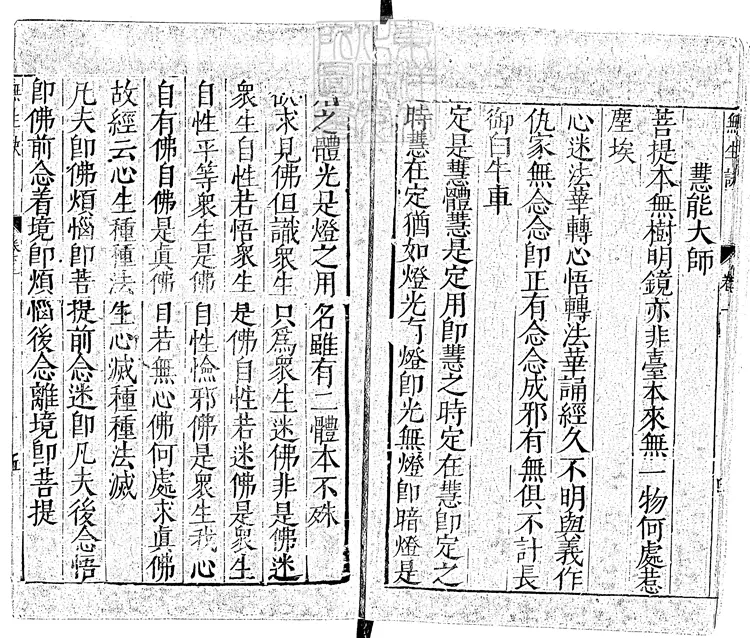 無生訣
卷一
慧能大師
菩提本無樹明鏡亦非臺本來無一物何處惹
塵埃
心迷法華轉心悟轉法華誦經久不明與義作
仇家無念念即正有念念成邪有無俱不計長
御白牛車
定是慧體慧是定用即慧之時定在慧即定之
時慧在定猶如燈光有燈即光無燈即暗燈是
之體光是燈之用名雖有二體本不殊
求見佛但識衆生只爲衆生迷佛非是佛迷
衆生自性若悟衆生是佛自性若迷佛是衆生
自性平等衆生是佛自性憸邪佛是衆生我心
自有佛自佛是眞佛自若無心佛何處求眞佛
故經云心生種種法生心滅種種法滅
凡夫即佛煩惱即菩提前念迷即凡夫後念悟
即佛前念着境即煩惱後念離境即菩提